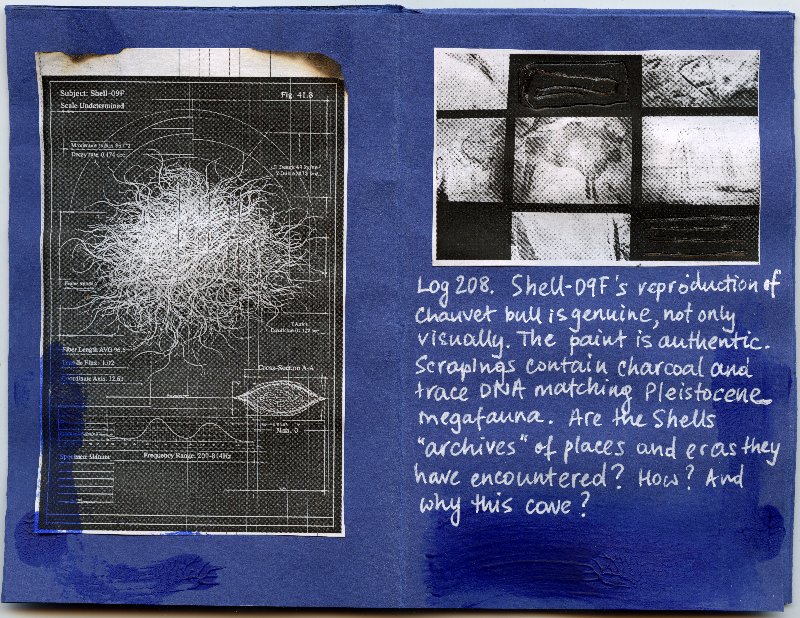 Subject: Shell-09F
Scale Undetermined
Fig. 41.8
Decay rate 0.174 sec
Fiber Length AVG 96.5
Coordinate Axis. 12.61
Cross-Section A-A
Frequency Range: 200-814Hz
Log 208. Shell-09F's reproduction of
Chauvet bull is genuine, not only
visually. The paint is authentic.
Scrapings contain charcoal and
trace DNA matching Pleistocene
megafauna. Are the Shells
"archives" of places and eras they
have encountered? How? And
why this cave?